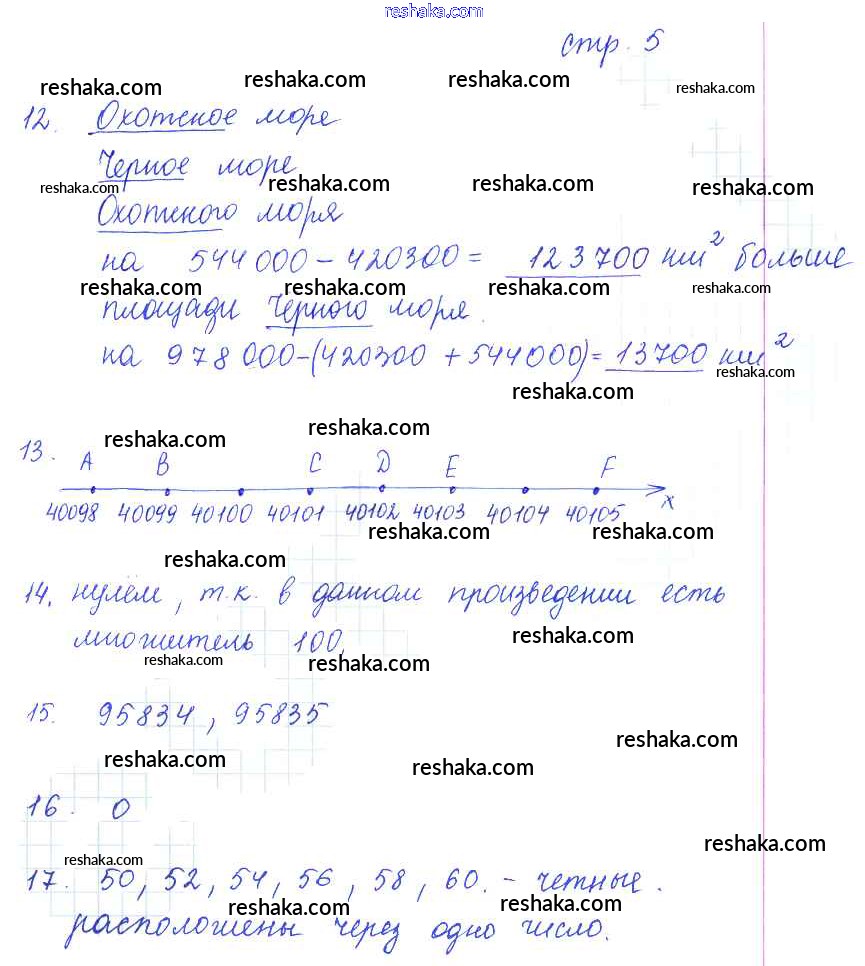 reshaka.com
стр. 5
reshaka.com reshaka.com reshaka.com reshaka.com
12. Охотское море
Черное море
reshaka.com reshaka.com reshaka.com reshaka.com
Охотского моря
на 544000 – 420300 = 123700 км² больше
reshaka.com reshaka.com reshaka.com reshaka.com
площади Черного моря.
на 978000–(420300 + 544000)= 13700 км²
reshaka.com
reshaka.com
reshaka.com reshaka.com
13. A B C D E F
40098 40099 40100 40101 40102 40103 40104 40105 x
reshaka.com reshaka.com
reshaka.com
14. нулём, т.к. в данном произведении есть
множитель 100.
reshaka.com
reshaka.com reshaka.com
15. 95834, 95835
reshaka.com reshaka.com reshaka.com
16. 0
reshaka.com
reshaka.com
17. 50, 52, 54, 56, 58, 60. – четные.
reshaka.com reshaka.com
расположены через одно число.